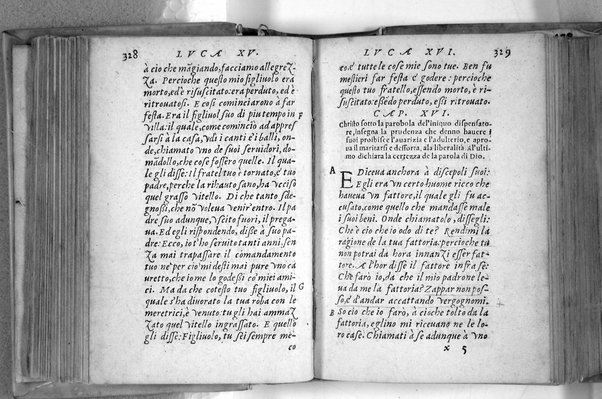 328
LVCÆ XV.
à cio che mãgiando, facciamo allegrez-
za. Percioche questo mio figliuolo era
morto, ed è risuscitato: era perduto, ed è
ritrovatosi. E cosi cominciarono à far
festa. Era il figliuol suo di piu tempo in F
villa: il quale, come comincio ad appres
sarsi à la casa, vdi i canti e i balli, on-
de, chiamato vno de suoi servidori, do-
mãdollo, che cose fossero quelle. Il qua-
le gli disse: Il fratel tuo è tornato, e'l tuo
padre, perche la rihauto sano, ha vcciso
quel grasso vitello. Di che tanto sde-
gnossi, che nõ voleua venir'entro. Il pa
dre suo adunque, vscito fuori, il prega-
ua. Ed egli rispondendo, disse à suo pa-
dre: Ecco, io t'ho seruito tanti anni. sen
za mai trapassare il comandamento
tuo ne' per cio mi desti mai pure vno ca
uretto, che io me lo godessi co' miei ami-
ci. Ma da che cotesto tuo figliuolo, il G
quale s'ha diuorato la tua roba con le
meretrici, è venuto: tu gli hai ammaz
zato quel vitello ingrassato. E quello
gli disse: Figliuolo, tu sei sempre me-
co
LVCÆ XVI.
329
co, e tutte le cose mie sono tue. Ben fu
mestieri far festa e godere: percioche
questo tuo fratello, essendo morto, è ri-
suscitato: essẽdo perduto, esi ritrovato.
CAP. XVI.
Christo sotto la parobola dell'iniquo dispensato-
re, insegna la prudenza che denno hauere i
suoi prohibisce l'auarizia e l'adulterio, e apro-
ua il maritarsi e desforra, ala liberalità al'ulti
mo dichiara la certezza de la parola di Dio.
A EDiceua anchora à discepoli suoi:
Egli era vn certo huome ricco che
haueua vn fattore, il quale gli fu ac-
cusato, come quello che mandasse male
i suoi beni. Onde chiamatolo, dissegli:
Che è cio che io odo di te? Rendimi la
ragione de la tua fattoria. percioche tu
non potrai da hora innanzi esser fatto-
re. A l'hor disse il fattore infra se:
Che farò io, da che il mio padrone le-
ua da me la fattoria? Zappar non pos-
so, e d'andar accattando vergognomi.
B So cio che io farò, à cioche tolto da la
fattoria, eglino mi riceuano ne le lo-
ro case. Chiamati à se adunque à vno
x 5